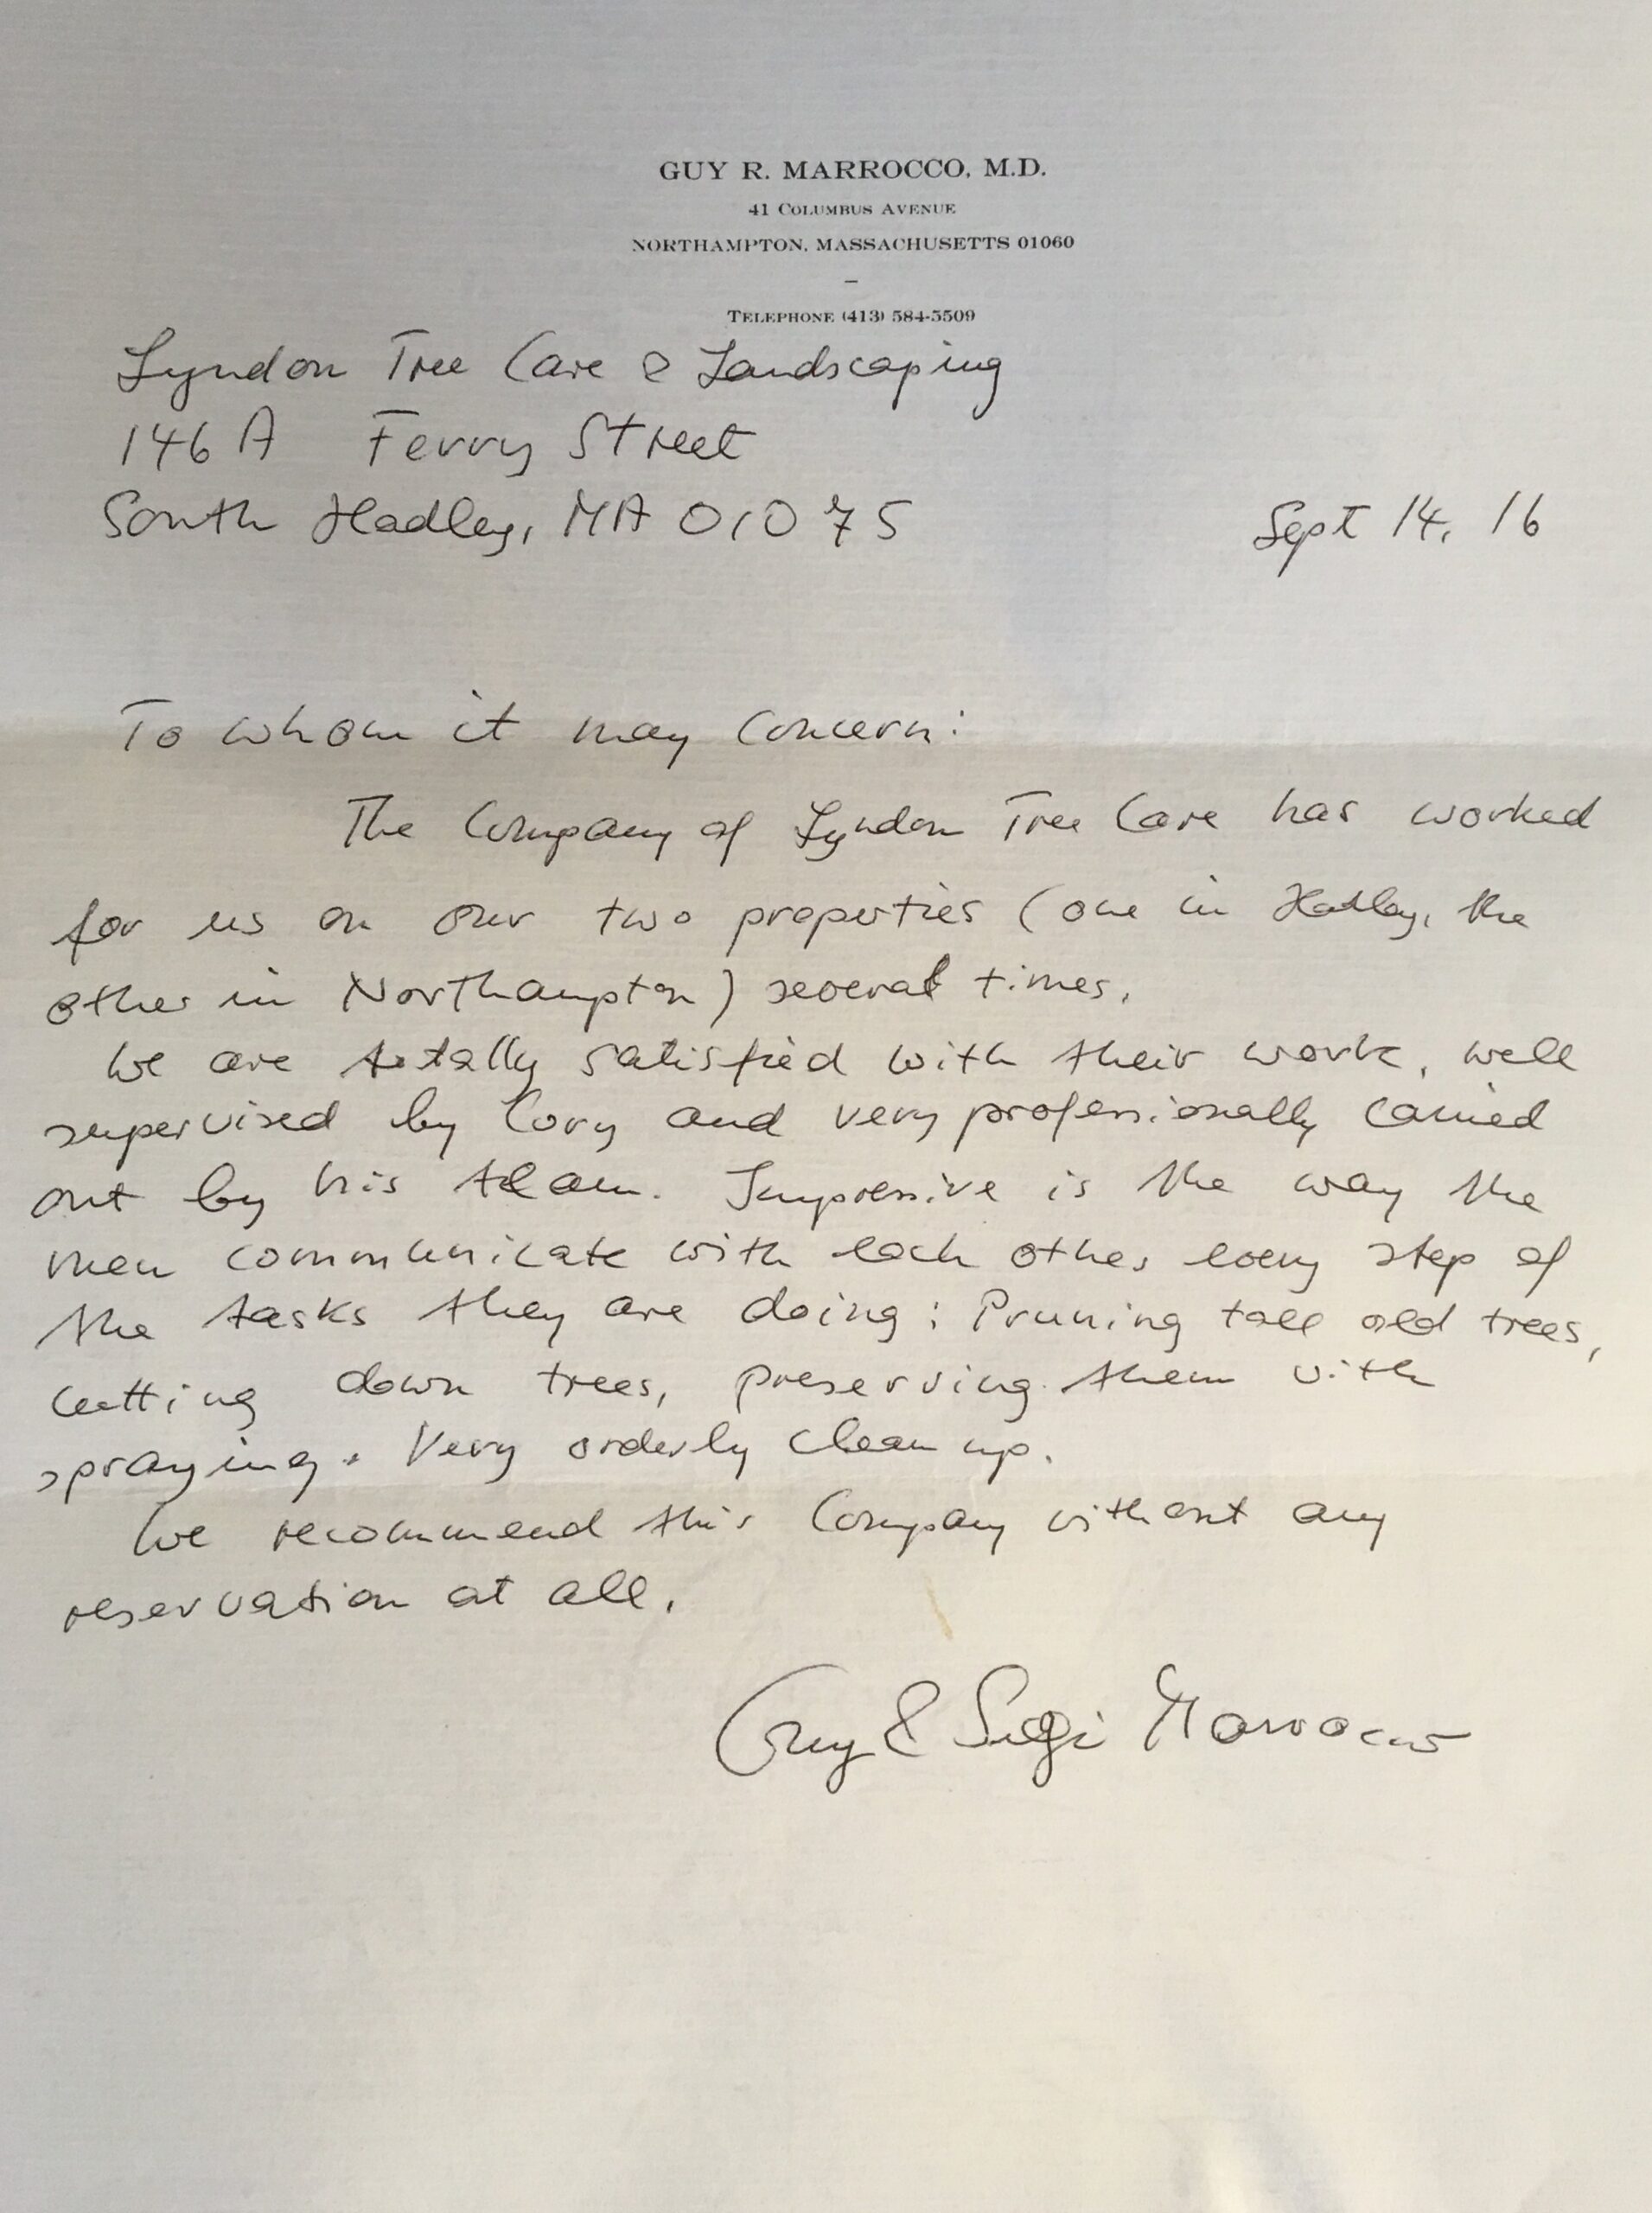 GUY R. MARROCCO, M.D.
41 COLUMBUS AVENUE
NORTHAMPTON, MASSACHUSETTS 01060
–
TELEPHONE (413) 584-5509
Lyndon Tree Care & Landscaping
146 A Ferry Street
South Hadley, MA 01075
Sept 14, 16
To whom it may concern:
The Company of Lyndon Tree Care has worked
for us on our two properties (one in Hadley, the
other in Northampton) several times.
We are totally satisfied with their work, well
supervised by Cory and very professionally carried
out by his team. Impressive is the way the
men communicate with each other every step of
the tasks they are doing: Pruning tall old trees,
cutting down trees, preserving them with
spraying. Very orderly clean up.
We recommend this Company without any
reservation at all.
Guy & Sigi Marrocco